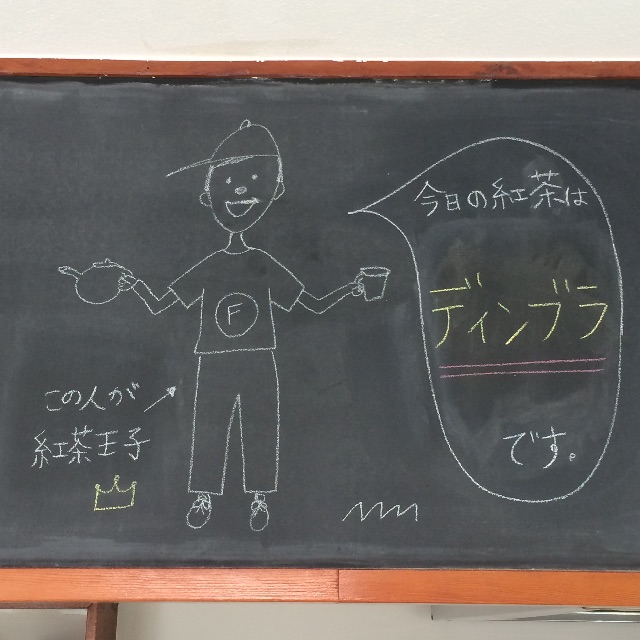 今日の紅茶は
ディンブラ
です。
F
この人が
紅茶王子